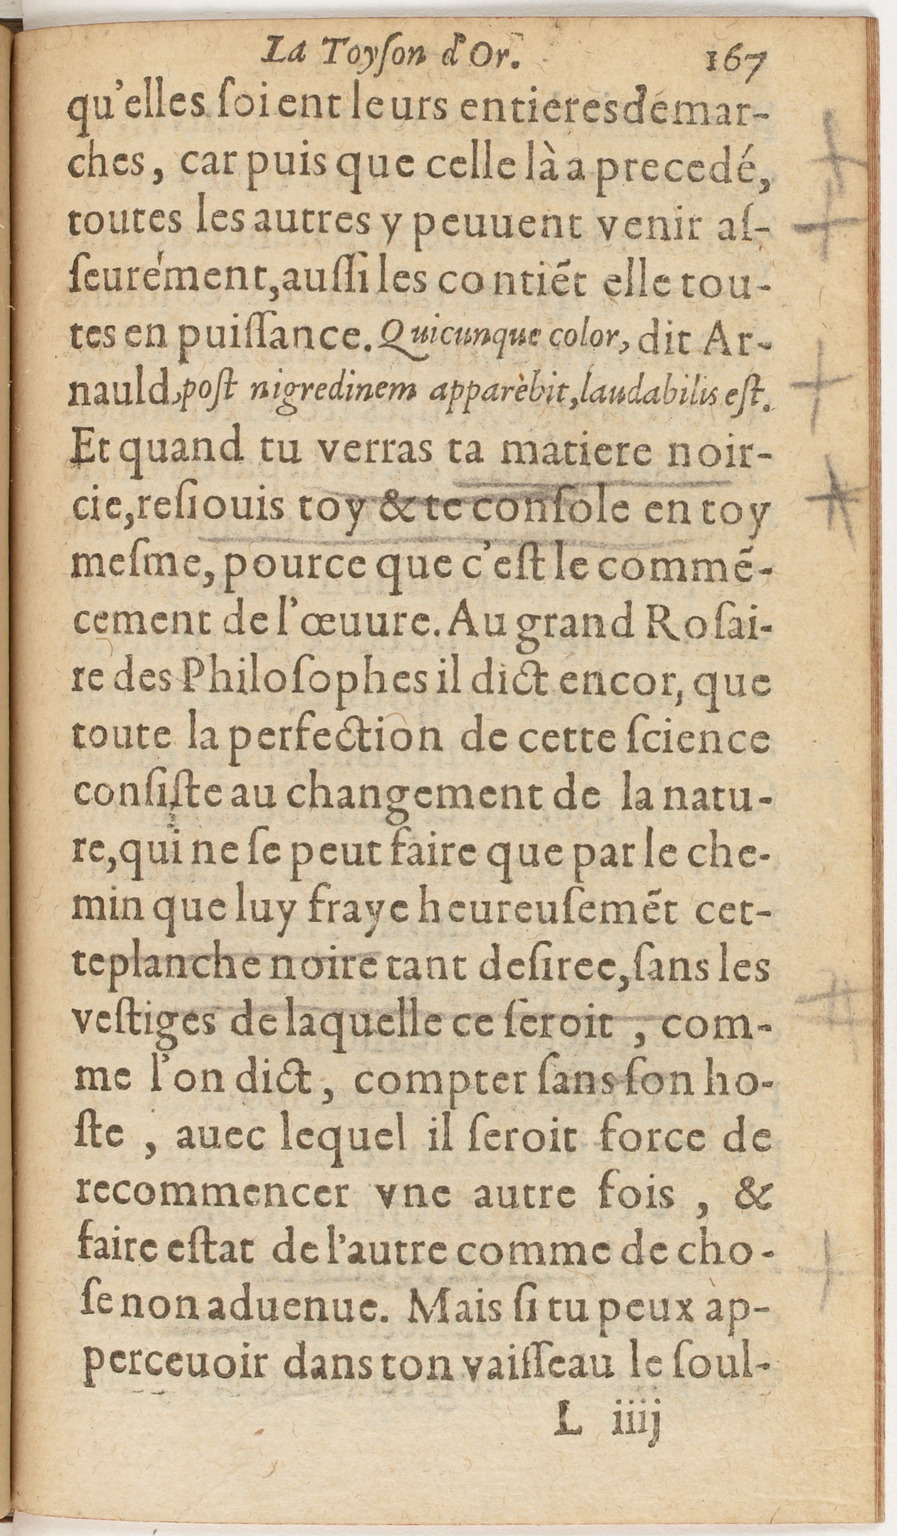 La Toyſon d'Or. 167
qu'elles ſoient leurs entieres démar-
ches, car puis que celle là a precedé,
toutes les autres y peuuent venir aſ-
ſeurément, auſſi les contiẽt elle tou-
tes en puiſſance. Quicunque color, dit Ar-
nauld, poſt nigredinem apparèbit, laudabilis eſt.
Et quand tu verras ta matiere noir-
cie, reſiouis toy & te conſole en toy
meſme, pource que c'eſt le commẽ-
cement de l'œuure. Au grand Roſai-
re des Philoſophes il dict encor, que
toute la perfection de cette ſcience
conſiſte au changement de la natu-
re, qui ne ſe peut faire que par le che-
min que luy fraye heureuſemẽt cet-
te planche noire tant deſiree, ſans les
veſtiges de laquelle ce ſeroit, com-
me l'on dict, compter ſans ſon ho-
ſte, auec lequel il ſeroit force de
recommencer vne autre fois, &
faire eſtat de l'autre comme de cho-
ſe non aduenue. Mais ſi tu peux ap-
perceuoir dans ton vaiſſeau le ſoul-
L iiij